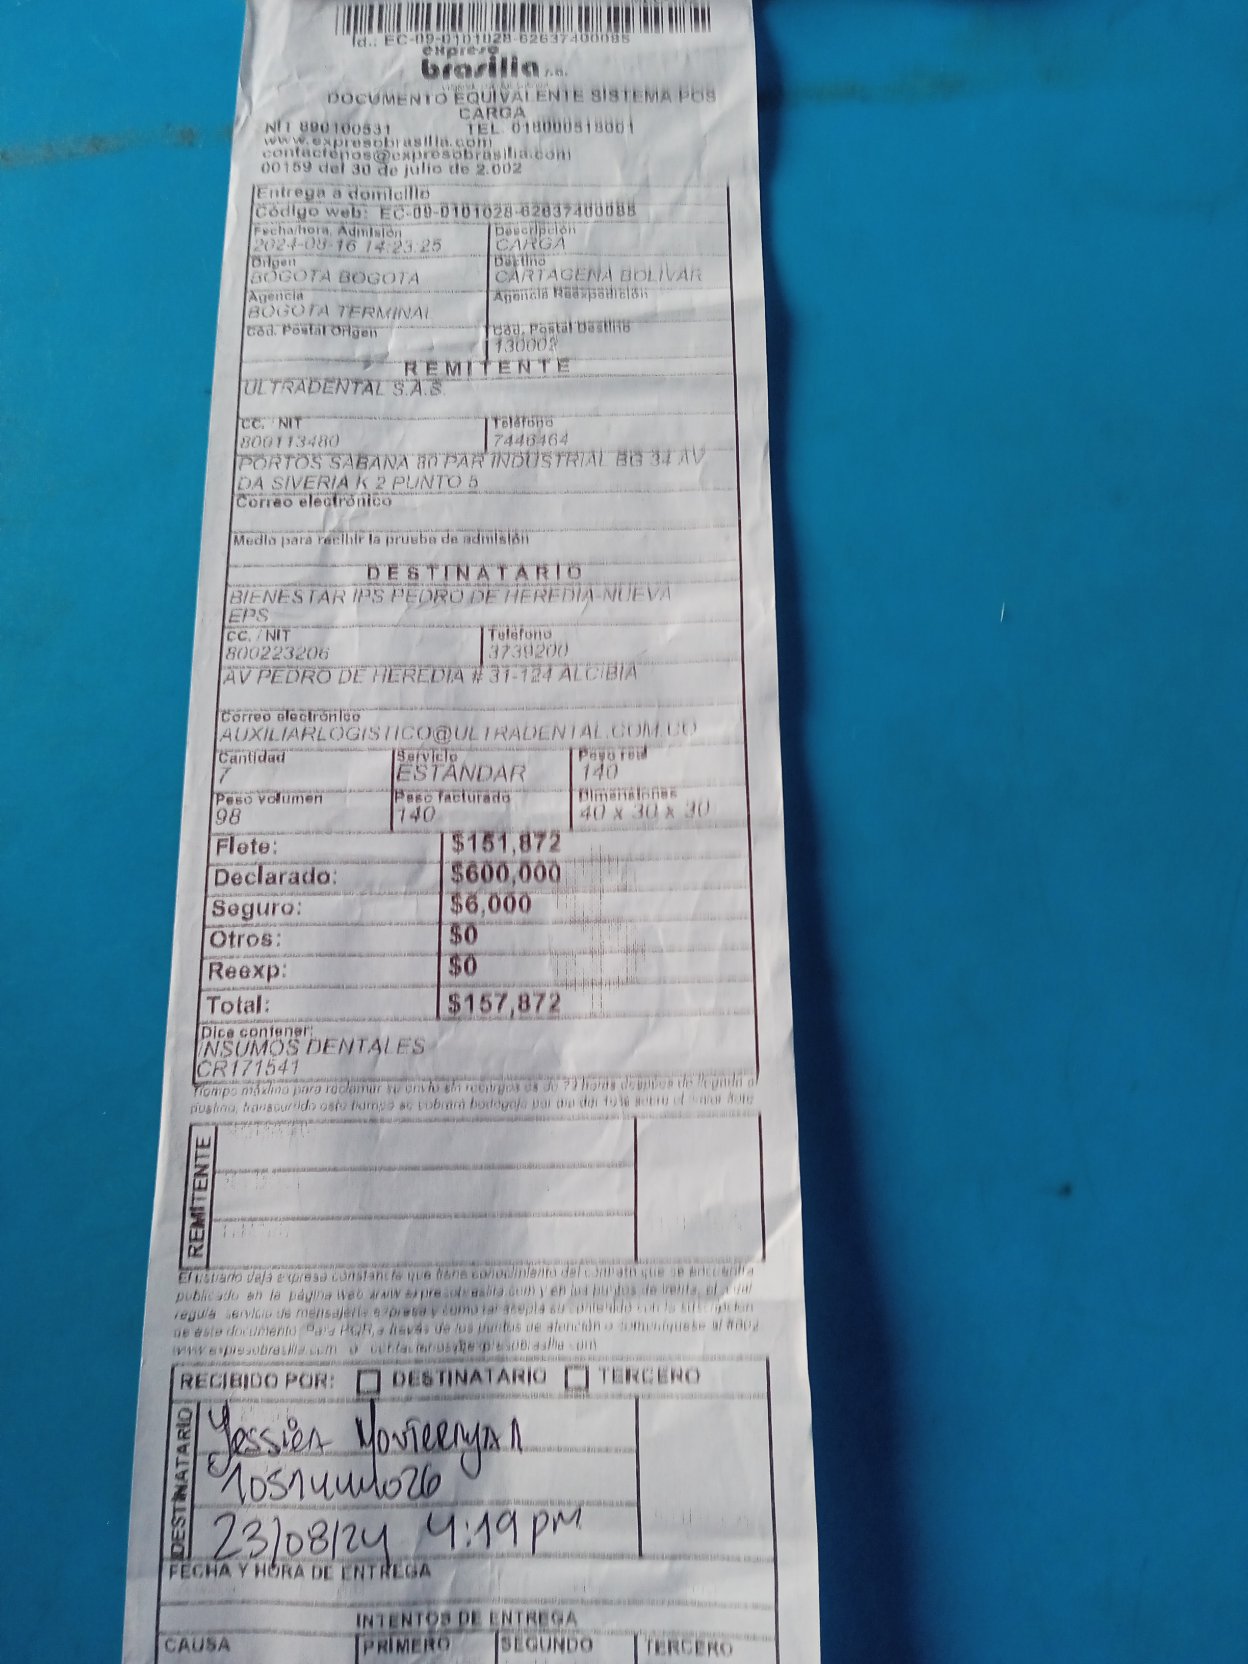 Id.: EC-09-0101028-62637400085
expreso
brasilia s.a.
DOCUMENTO EQUIVALENTE SISTEMA POS
CARGA
NIT 890100531 TEL. 018000518001
www.expresobrasilia.com
contactenos@expresobrasilia.com
00159 del 30 de julio de 2.002
Entrega a domicilio
Código web: EC-09-0101028-62637400085
Fecha/hora. Admisión Descripción
2024-08-16 14:23:25 CARGA
Origen Destino
BOGOTA BOGOTA CARTAGENA BOLIVAR
Agencia Agencia Reexpedición
BOGOTA TERMINAL
Cód. Postal Origen Cód. Postal Destino
130002
REMITENTE
ULTRADENTAL S.A.S.
CC. / NIT Teléfono
800113480 7446464
PORTOS SABANA 80 PAR INDUSTRIAL BG 34 AV
DA SIVERIA K 2 PUNTO 5
Correo electrónico
Medio para recibir la prueba de admisión
DESTINATARIO
BIENESTAR IPS PEDRO DE HEREDIA-NUEVA
EPS
CC. / NIT Teléfono
800223206 3739200
AV PEDRO DE HEREDIA # 31-124 ALCIBIA
Correo electrónico
AUXILIARLOGISTICO@ULTRADENTAL.COM.CO
Cantidad Servicio Peso real
7 ESTANDAR 140
Peso volumen Peso facturado Dimensiones
98 140 40 x 30 x 30
Flete: $151,872
Declarado: $600,000
Seguro: $6,000
Otros: $0
Reexp: $0
Total: $157,872
Dice contener:
INSUMOS DENTALES
CR171541
Tiempo máximo para reclamar su envío sin recargos es de 72 horas después de llegada al
destino, transcurrido este tiempo se cobrará bodegaje por día del 10% sobre el valor flete
REMITENTE
El usuario deja expresa constancia que tiene conocimiento del contrato que se encuentra
publicado en la página web www.expresobrasilia.com y en los puntos de venta, el cual
regula servicio de mensajería expresa y como tal acepta su contenido con la suscripción
de este documento. Para PQR, a través de los puntos de atención o comuníquese al
www.expresobrasilia.com o contactenos@expresobrasilia.com
RECIBIDO POR: DESTINATARIO TERCERO
DESTINATARIO
Yessica Monterroza
23/08/24 4:19 pm
FECHA Y HORA DE ENTREGA
INTENTOS DE ENTREGA
CAUSA PRIMERO SEGUNDO TERCERO